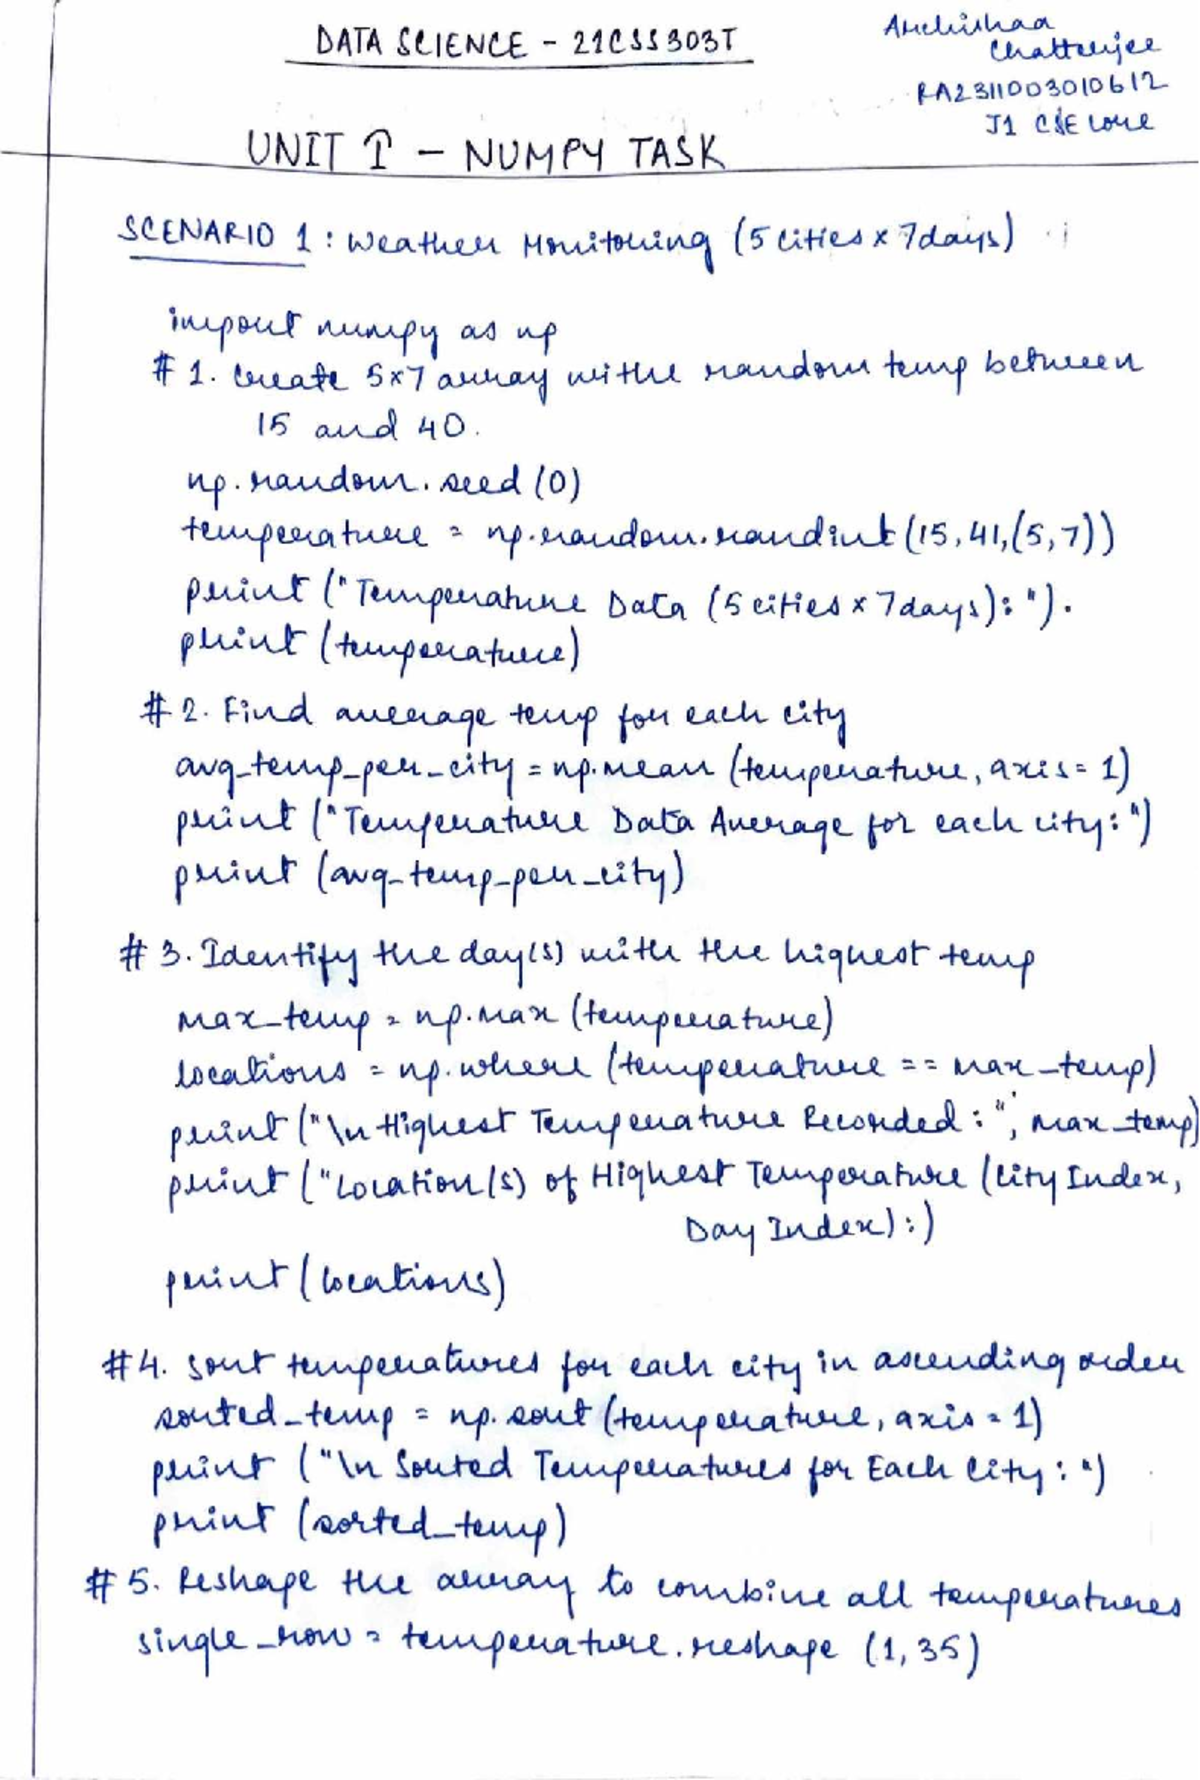 DATA SCIENCE - 21CSS303T
Archishaa
Chatterjee
RA2311003010612
J1 CSE Core
UNIT I - NUMPY TASK
SCENARIO 1 : Weather Monitoring (5 cities x 7 days)
import numpy as np
# 1. Create 5x7 array with random temp between
15 and 40.
np.random.seed (0)
temperature = np.random.randint (15, 41, (5, 7))
print ("Temperature Data (5 cities x 7 days): ").
print (temperature)
# 2. Find average temp for each city
avg_temp_per_city = np.mean (temperature, axis = 1)
print ("Temperature Data Average for each city: ")
print (avg_temp_per_city)
# 3. Identify the day(s) with the highest temp
max_temp = np.max (temperature)
locations = np.where (temperature == max_temp)
print ("\n Highest Temperature Recorded : ", max_temp)
print ("Location(s) of Highest Temperature (City Index,
Day Index) :)
print (locations)
# 4. Sort temperatures for each city in ascending order
sorted_temp = np.sort (temperature, axis = 1)
print ("\n Sorted Temperatures for Each City : ")
print (sorted_temp)
# 5. Reshape the array to combine all temperatures
single_row = temperature.reshape (1, 35)